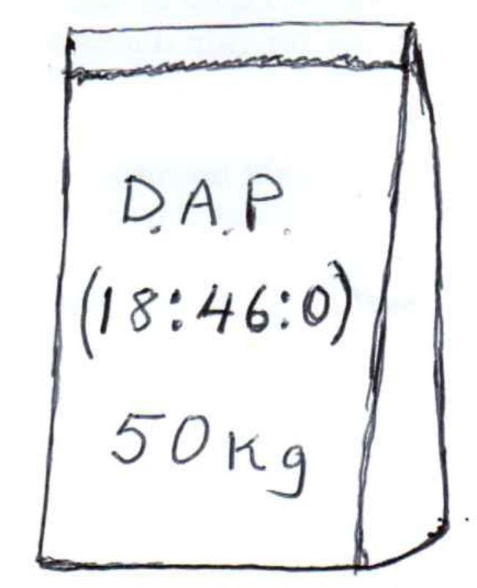 D.A.P.
(18:46:0)
50Kg